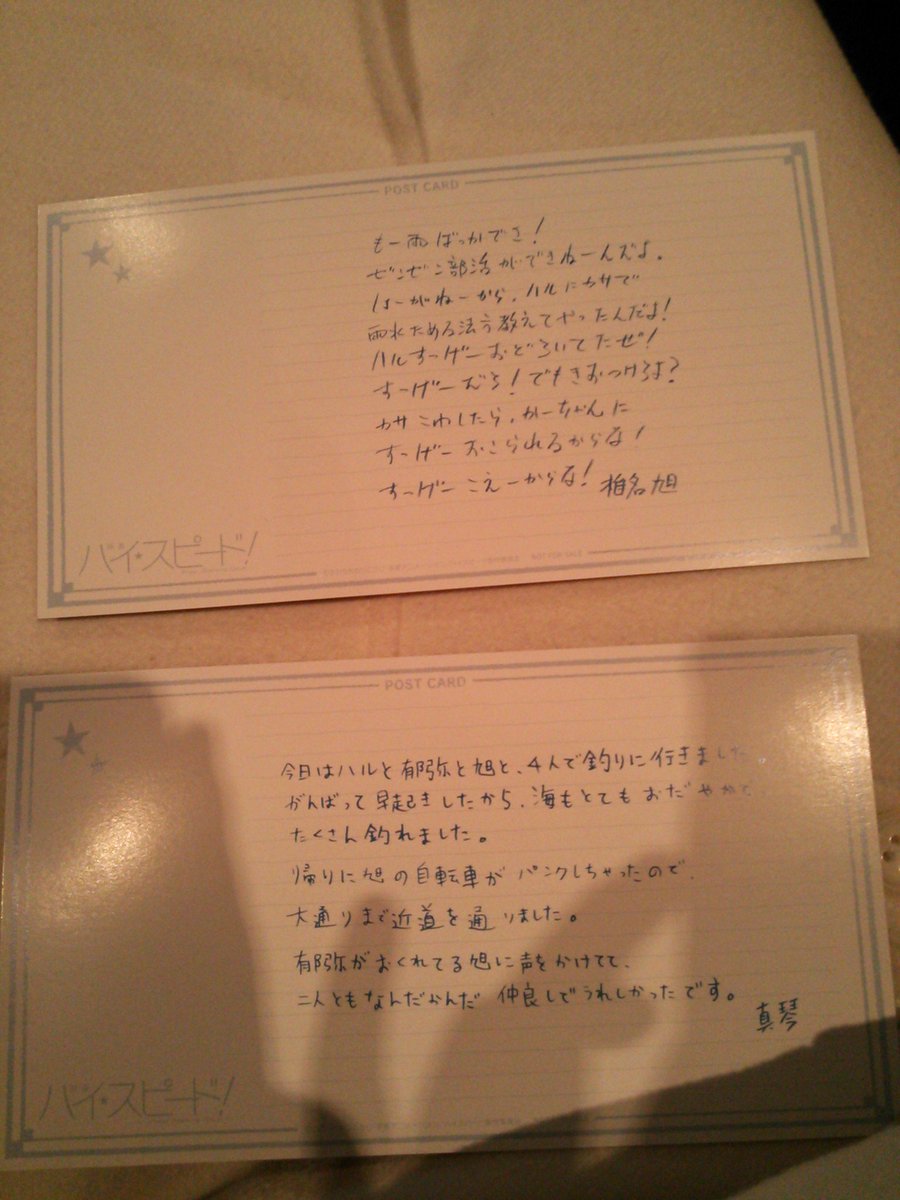 POST CARD
もー雨ばっかでさ!
ゼンゼン部活ができねーんだよ。
しょーがねーから、ハルにカサで
雨水ためる法方教えてやったんだよ!
ハルすっげーおどろいてたぜ!
すっげーだろ!でもきおつけろよ?
カサこわしたら、かーちゃんに
すっげーおこられるからな!
すっげーこえーからな!
椎名旭
ハイ☆スピード!
NOT FOR SALE
POST CARD
今日はハルと郁弥と旭と、4人で釣りに行きました
がんばって早起きしたから、海もとてもおだやかで
たくさん釣れました。
帰りに旭の自転車がパンクしちゃったので、
大通りまで近道を通りました。
郁弥がおくれてる旭に声をかけてて、
二人ともなんだかんだ仲良しでうれしかったです。
真琴
ハイ☆スピード!